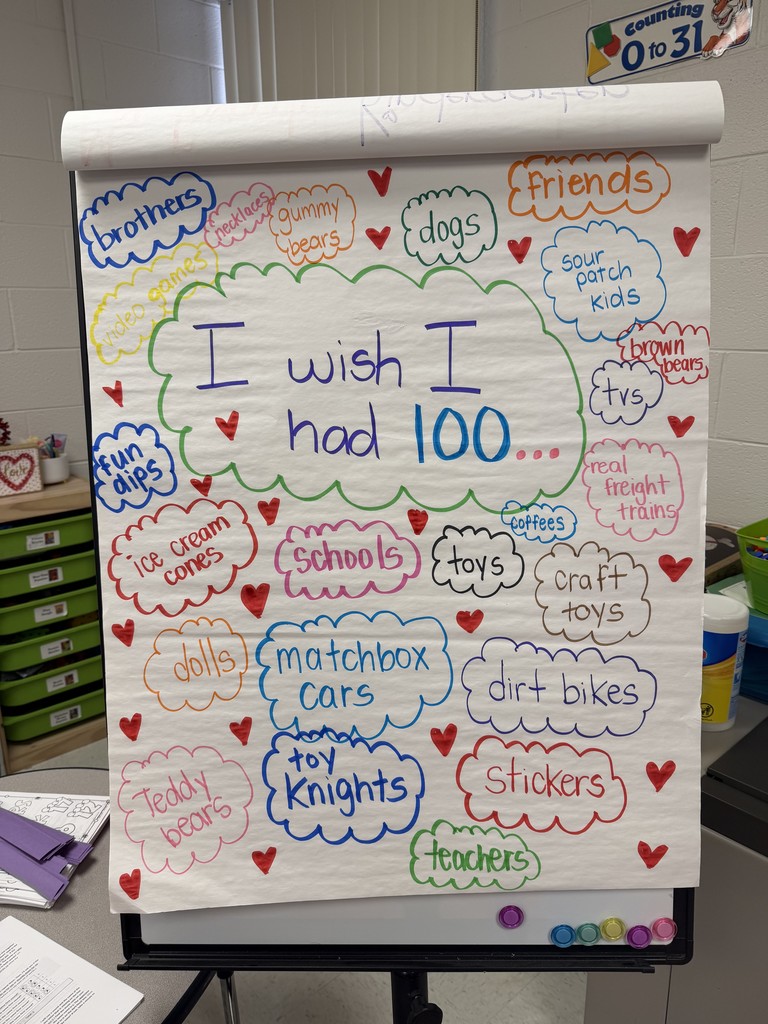 Counting
0 to 31
brothers
necklaces
gummy
bears
dogs
friends
video games
sour
patch
kids
I wish I
had 100...
brown
bears
tvs
fun
dips
real
freight
trains
coffees
ice cream
cones
schools
toys
craft
toys
dolls
matchbox
cars
dirt bikes
Teddy
bears
toy
Knights
stickers
teachers